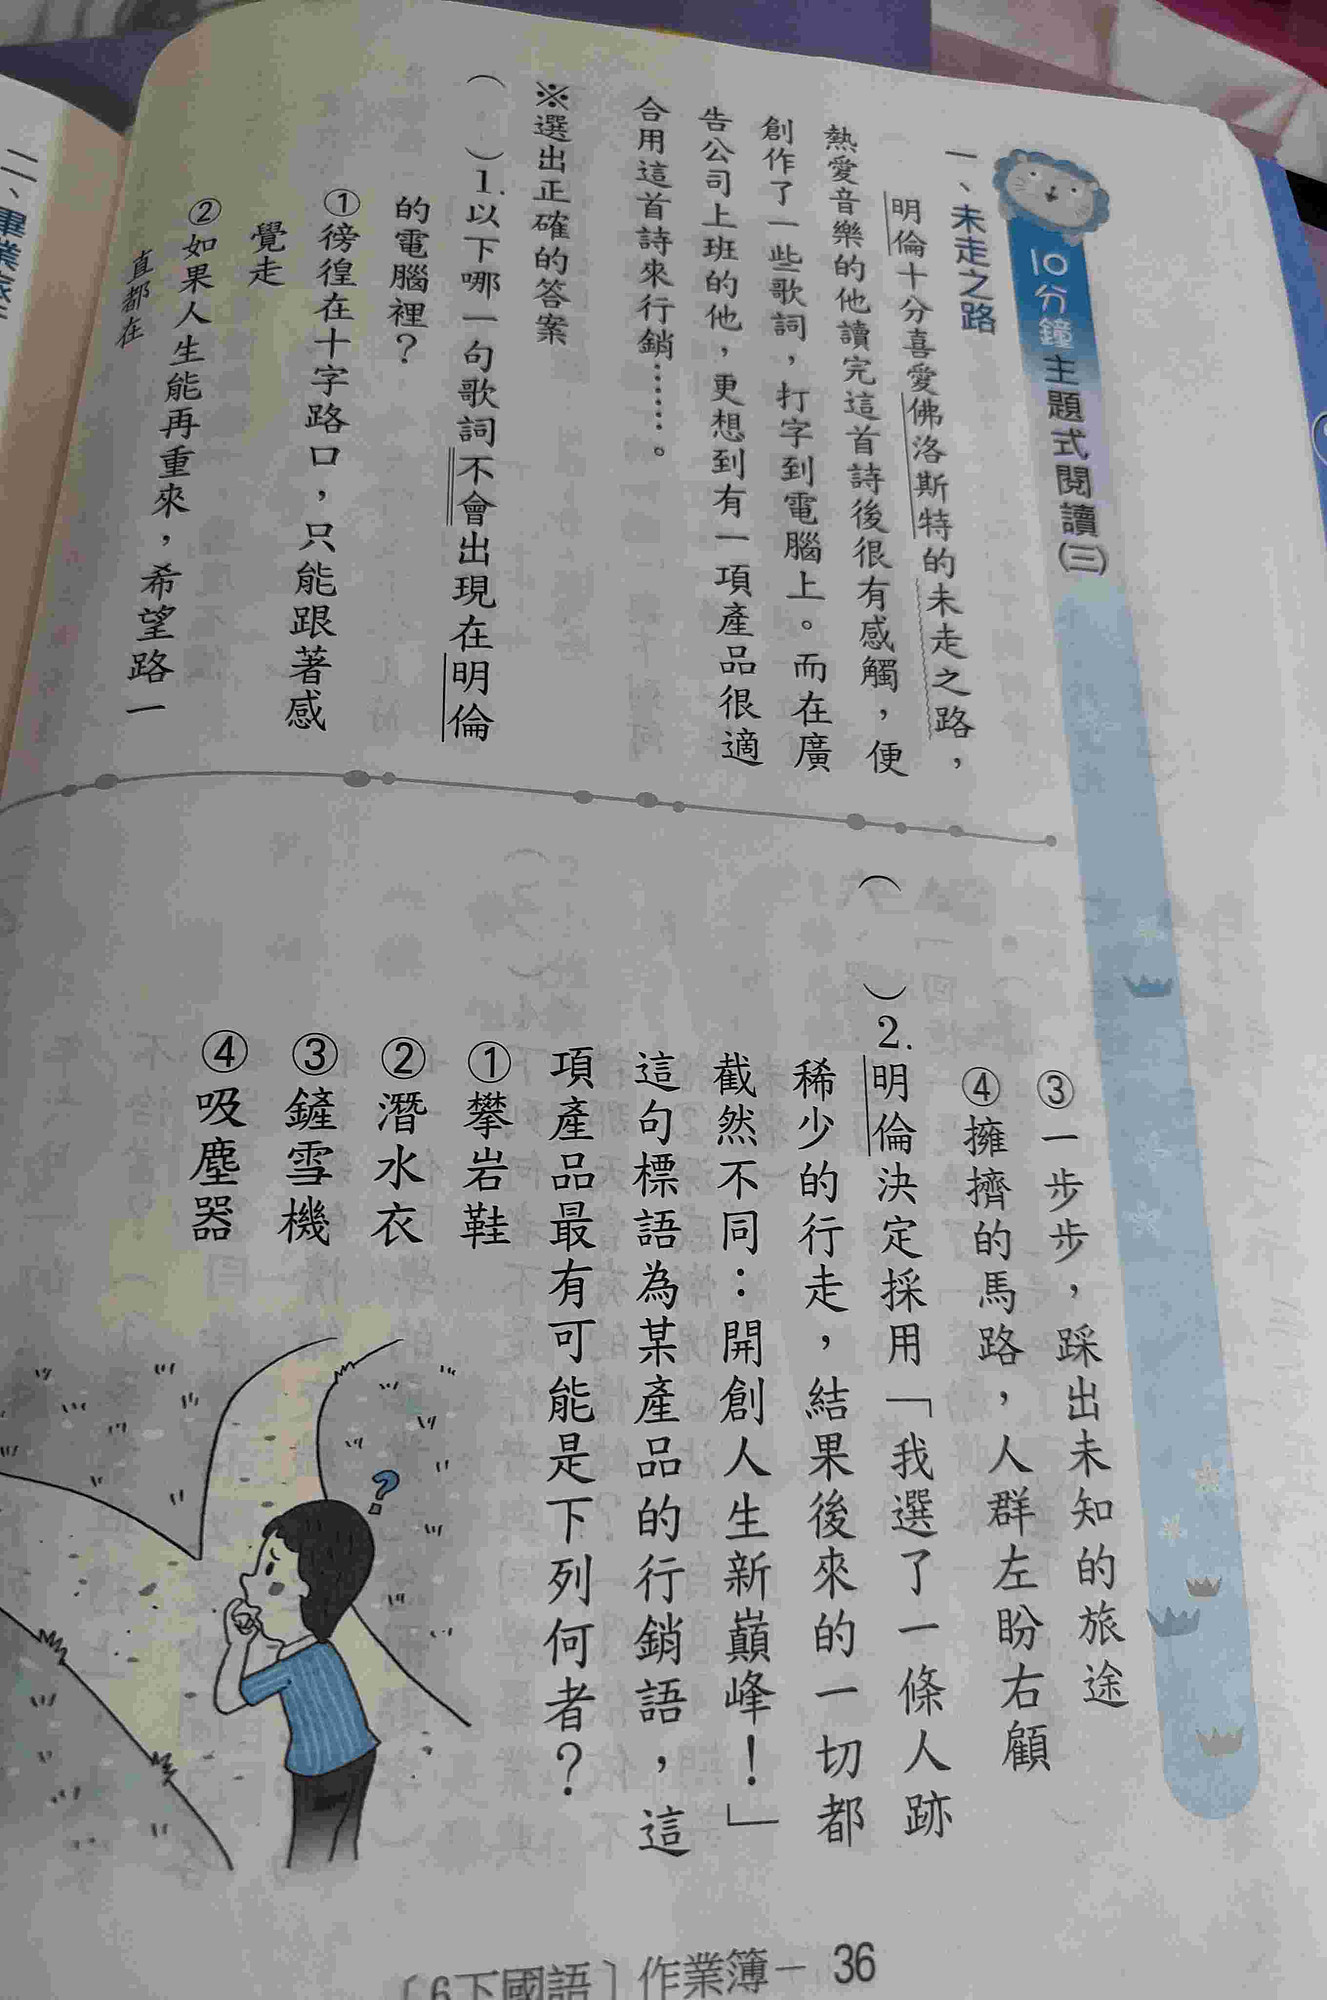 10分鐘主題式閱讀(三)
一、未走之路
明倫十分喜愛佛洛斯特的未走之路，
熱愛音樂的他讀完這首詩後很有感觸，便
創作了一些歌詞，打字到電腦上。而在廣
告公司上班的他，更想到有一項產品很適
合用這首詩來行銷……。
※選出正確的答案
（　）1.以下哪一句歌詞不會出現在明倫
的電腦裡？
①徬徨在十字路口，只能跟著感
覺走
②如果人生能再重來，希望路一
直都在
③一步步，踩出未知的旅途
④擁擠的馬路，人群左盼右顧
（　）2.明倫決定採用「我選了一條人跡
稀少的行走，結果後來的一切都
截然不同：開創人生新巔峰！」
這句標語為某產品的行銷語，這
項產品最有可能是下列何者？
①攀岩鞋
②潛水衣
③鏟雪機
④吸塵器
?
〔6下國語〕作業簿－36
二、畢業